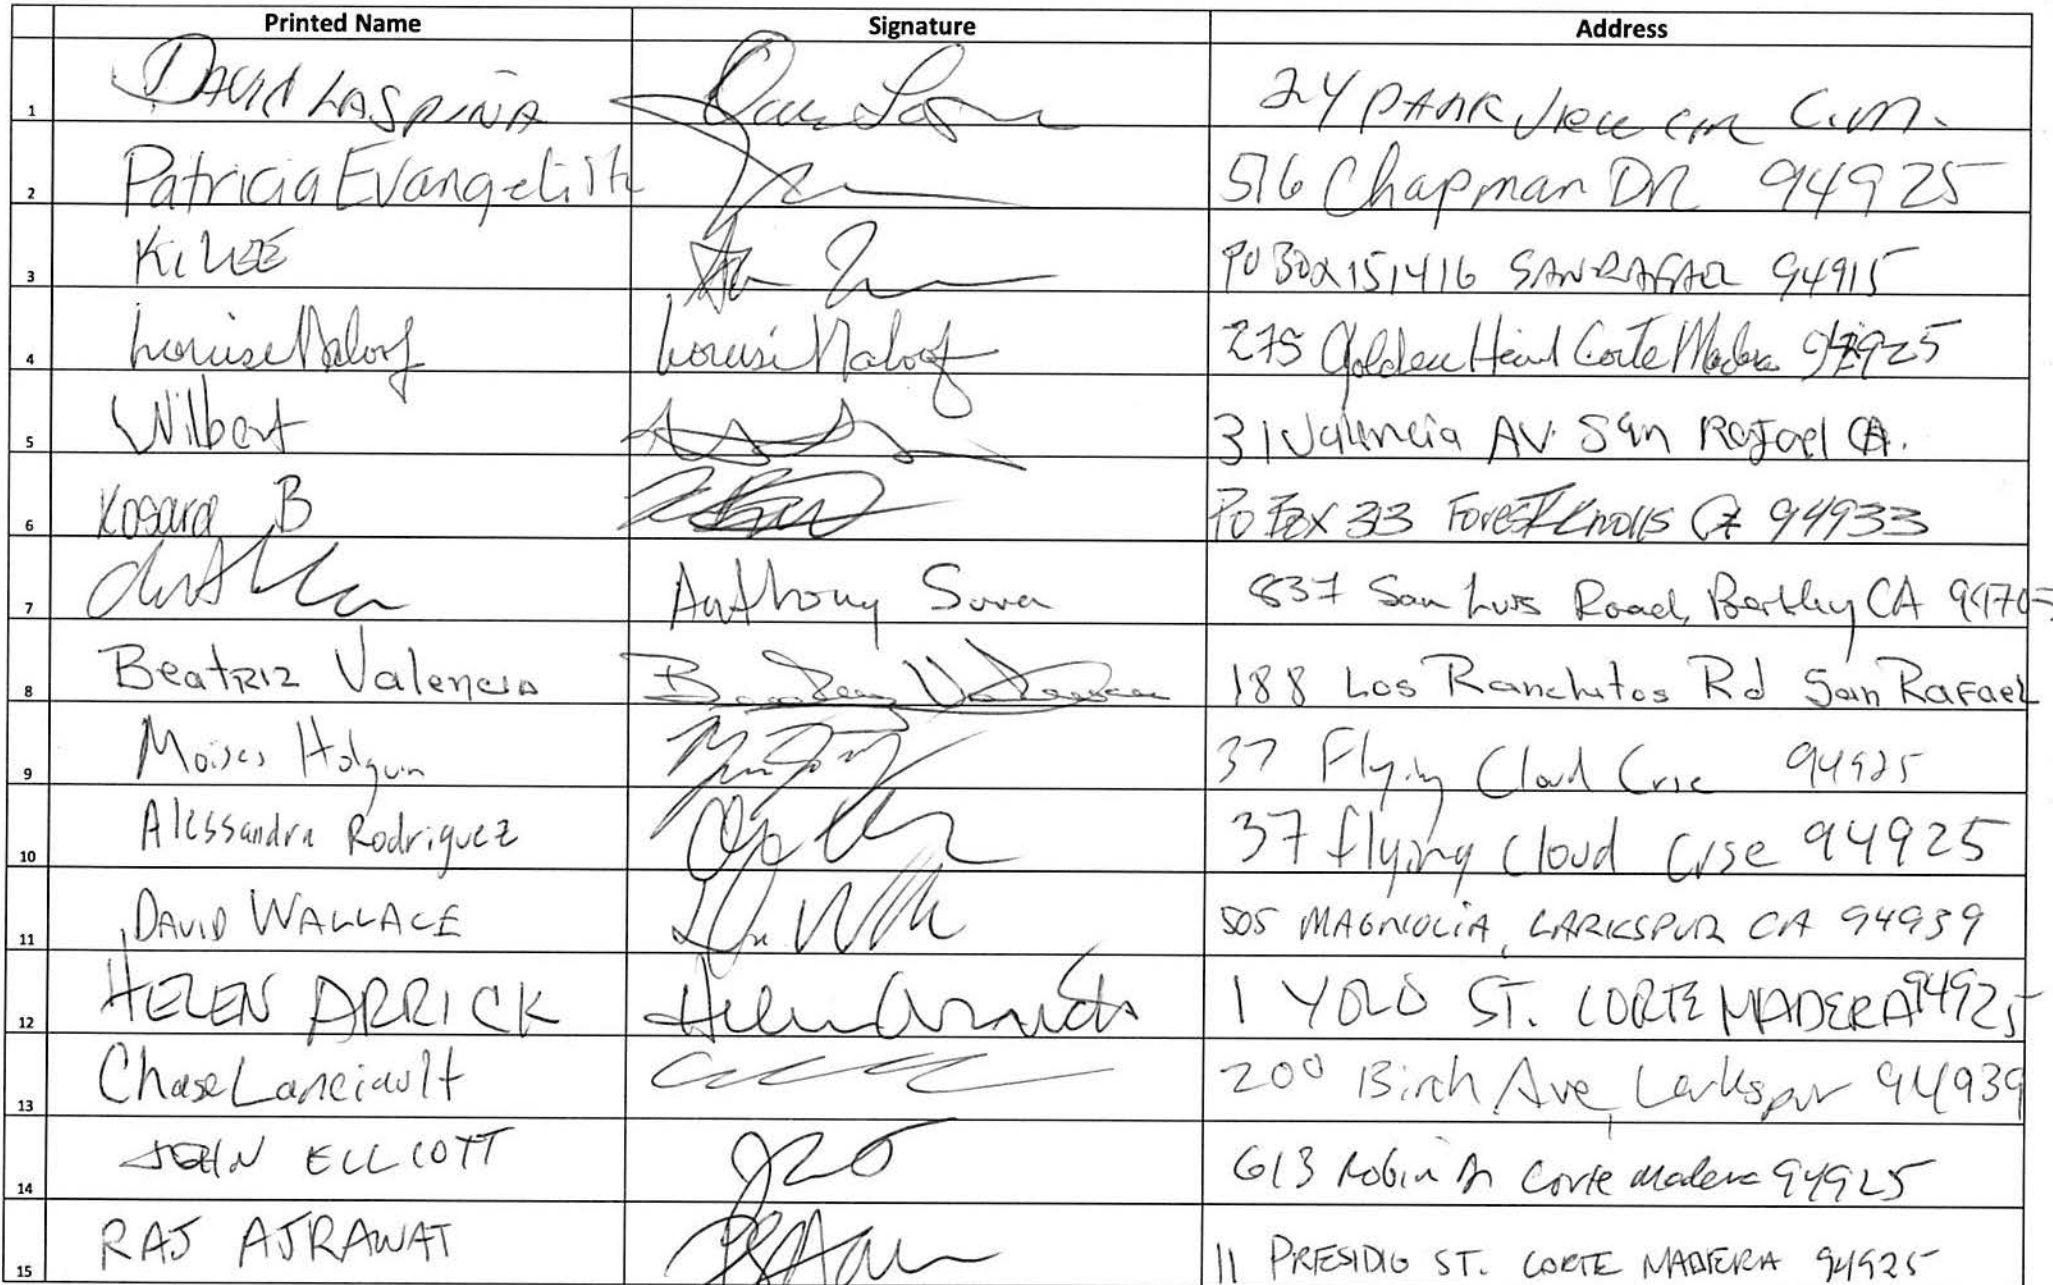 Printed Name Signature Address
1 DAVID LASPINA 24 PARK VIEW CIR C.M.
2 Patricia Evangelist 516 Chapman DR 94925
3 Ki LEE PO BOX 151416 SAN RAFAEL 94915
4 Louise Maloof Louise Maloof 275 Golden Hind Corte Madera 94925
5 Wilbert 31 Valencia AV. San Rafael CA.
6 Kosara B PO Box 33 Forest Knolls CA 94933
7 Anthony Suva 837 San Luis Road, Berkley CA 94705
8 BeatRiz Valencia 188 Los Ranchitos Rd San Rafael
9 Moises Holguin 37 Flying Cloud Crse 94925
10 Alessandra Rodriguez 37 flying cloud Crse 94925
11 DAVID WALLACE 505 MAGNOLIA, LARKSPUR CA 94939
12 HELEN ARRICK Helen Arrick 1 YOLO ST. CORTE MADERA 94925
13 Chase Lanciault 200 Birch Ave, Larkspur 94939
14 JOHN ELLIOTT 613 Robin Dr Corte Madera 94925
15 RAJ AJRAWAT 11 PRESIDIO ST. CORTE MADERA 94925